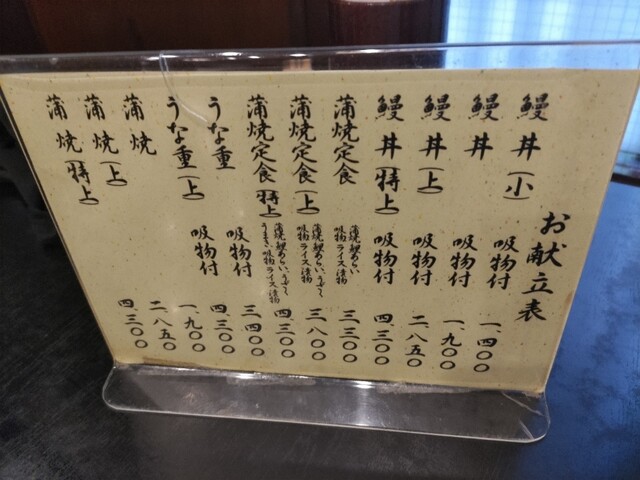 お献立表
鰻丼(小) 吸物付 一、四〇〇
鰻丼 吸物付 一、九〇〇
鰻丼(上) 吸物付 二、八五〇
鰻丼(特上) 吸物付 四、三〇〇
蒲焼定食 蒲焼 鯉あらい 吸物 ライス 漬物 三、三〇〇
蒲焼定食(上) 蒲焼 鯉あらい、うざく 吸物 ライス 漬物 三、八〇〇
蒲焼定食(特上) 蒲焼 鯉あらい、うざく、うまき、吸物 ライス 漬物 四、三〇〇
うな重 吸物付 三、四〇〇
うな重(上) 吸物付 四、三〇〇
蒲焼 一、九〇〇
蒲焼(上) 二、八五〇
蒲焼(特上) 四、三〇〇